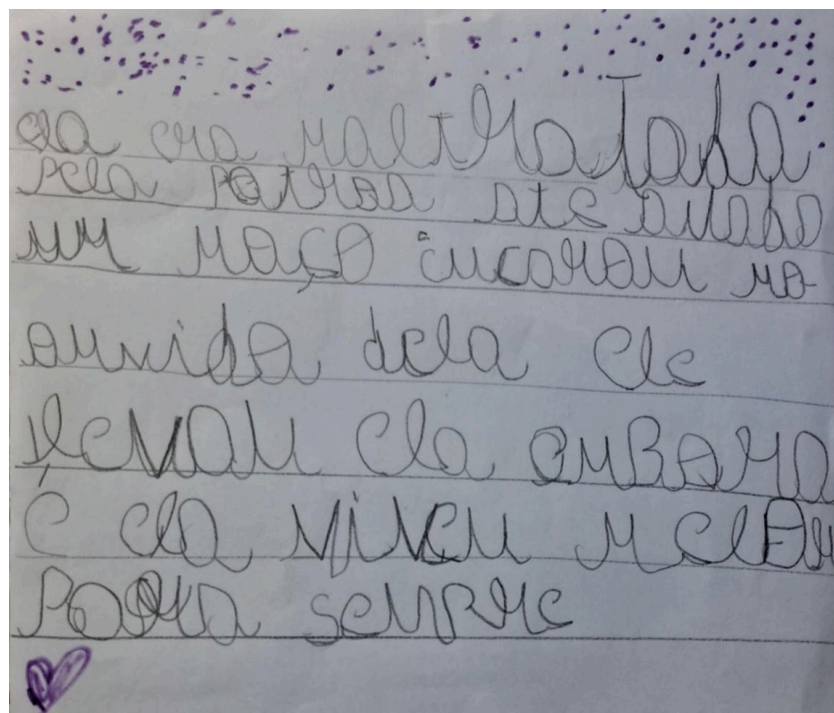 ela era maltratada
pela patroa ate
um moço
ouvida dela ele
levau ela embora
e ela viveu melhor
para sempre